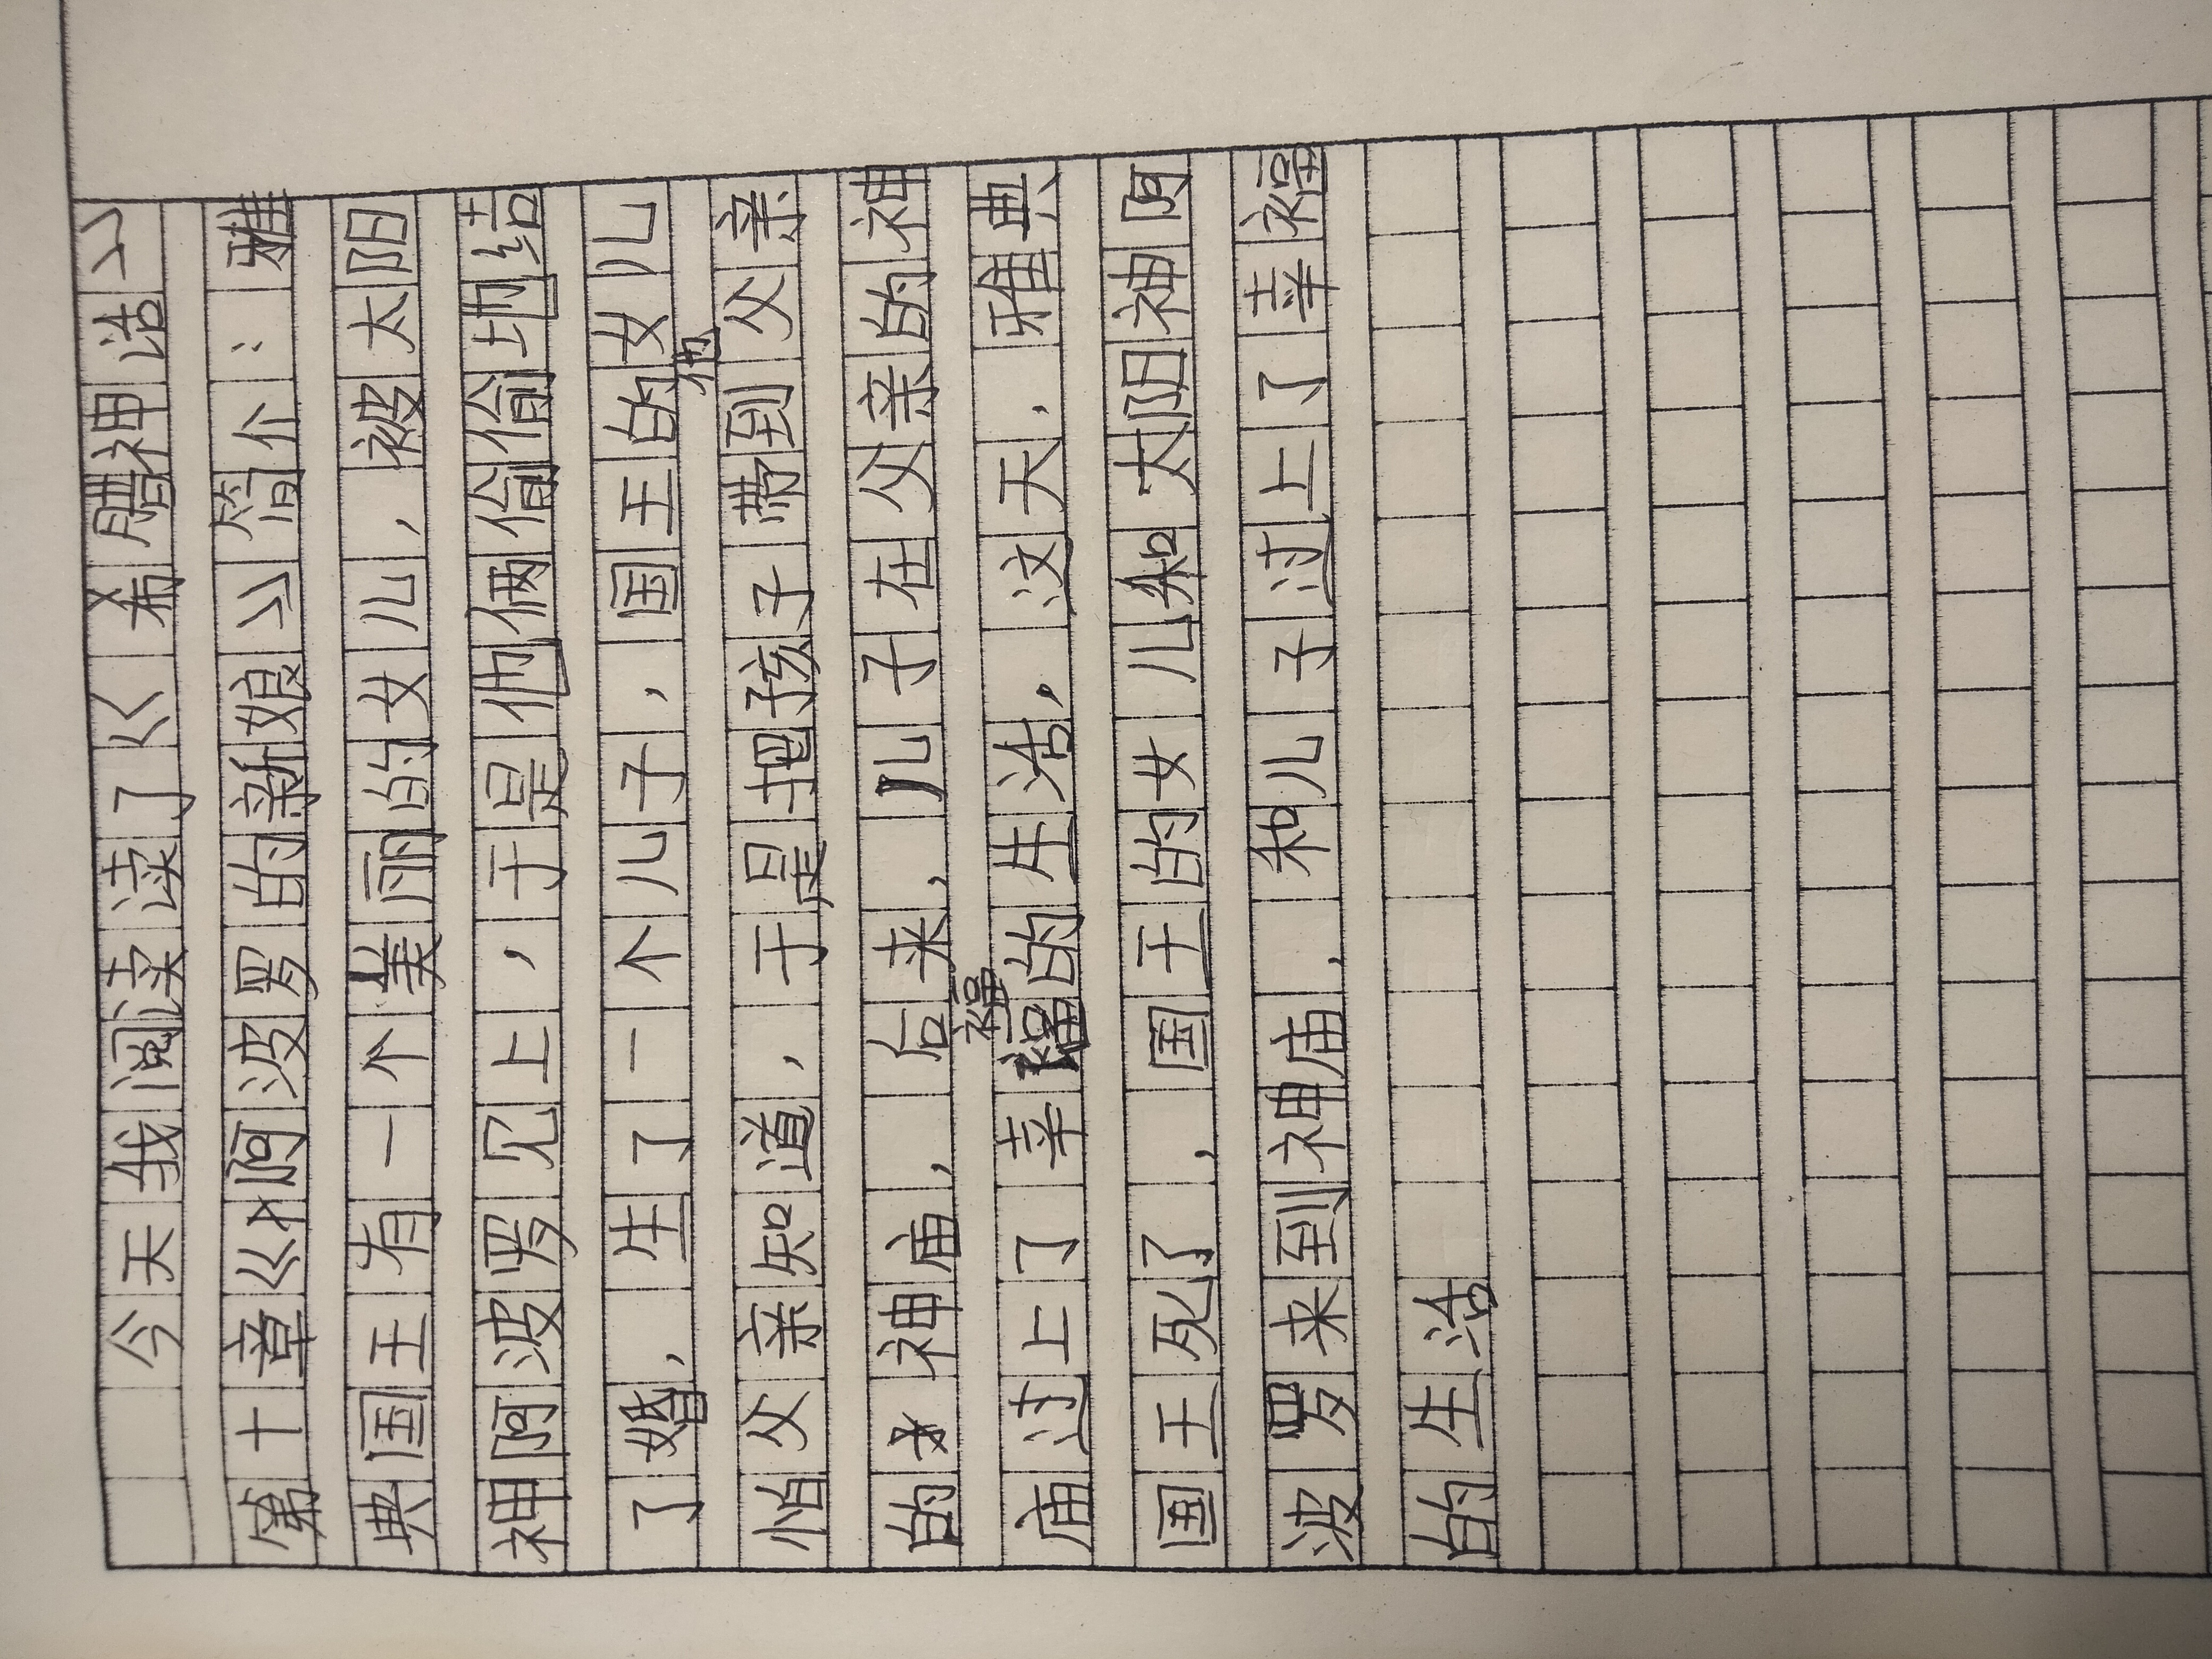 今天我阅读了《希腊神话》
第十章《阿波罗的新娘》简介：雅
典国王有一个美丽的女儿，被太阳
神阿波罗见上，于是他俩偷偷地结
了婚，生了一个儿子，国王的女儿
怕父亲知道，于是把孩子带到他父亲
的神庙，后来，儿子在父亲的神
庙过上了幸福的生活，这天，雅典
国王死了，国王的女儿和太阳神阿
波罗来到神庙，和儿子过上了幸福
的生活